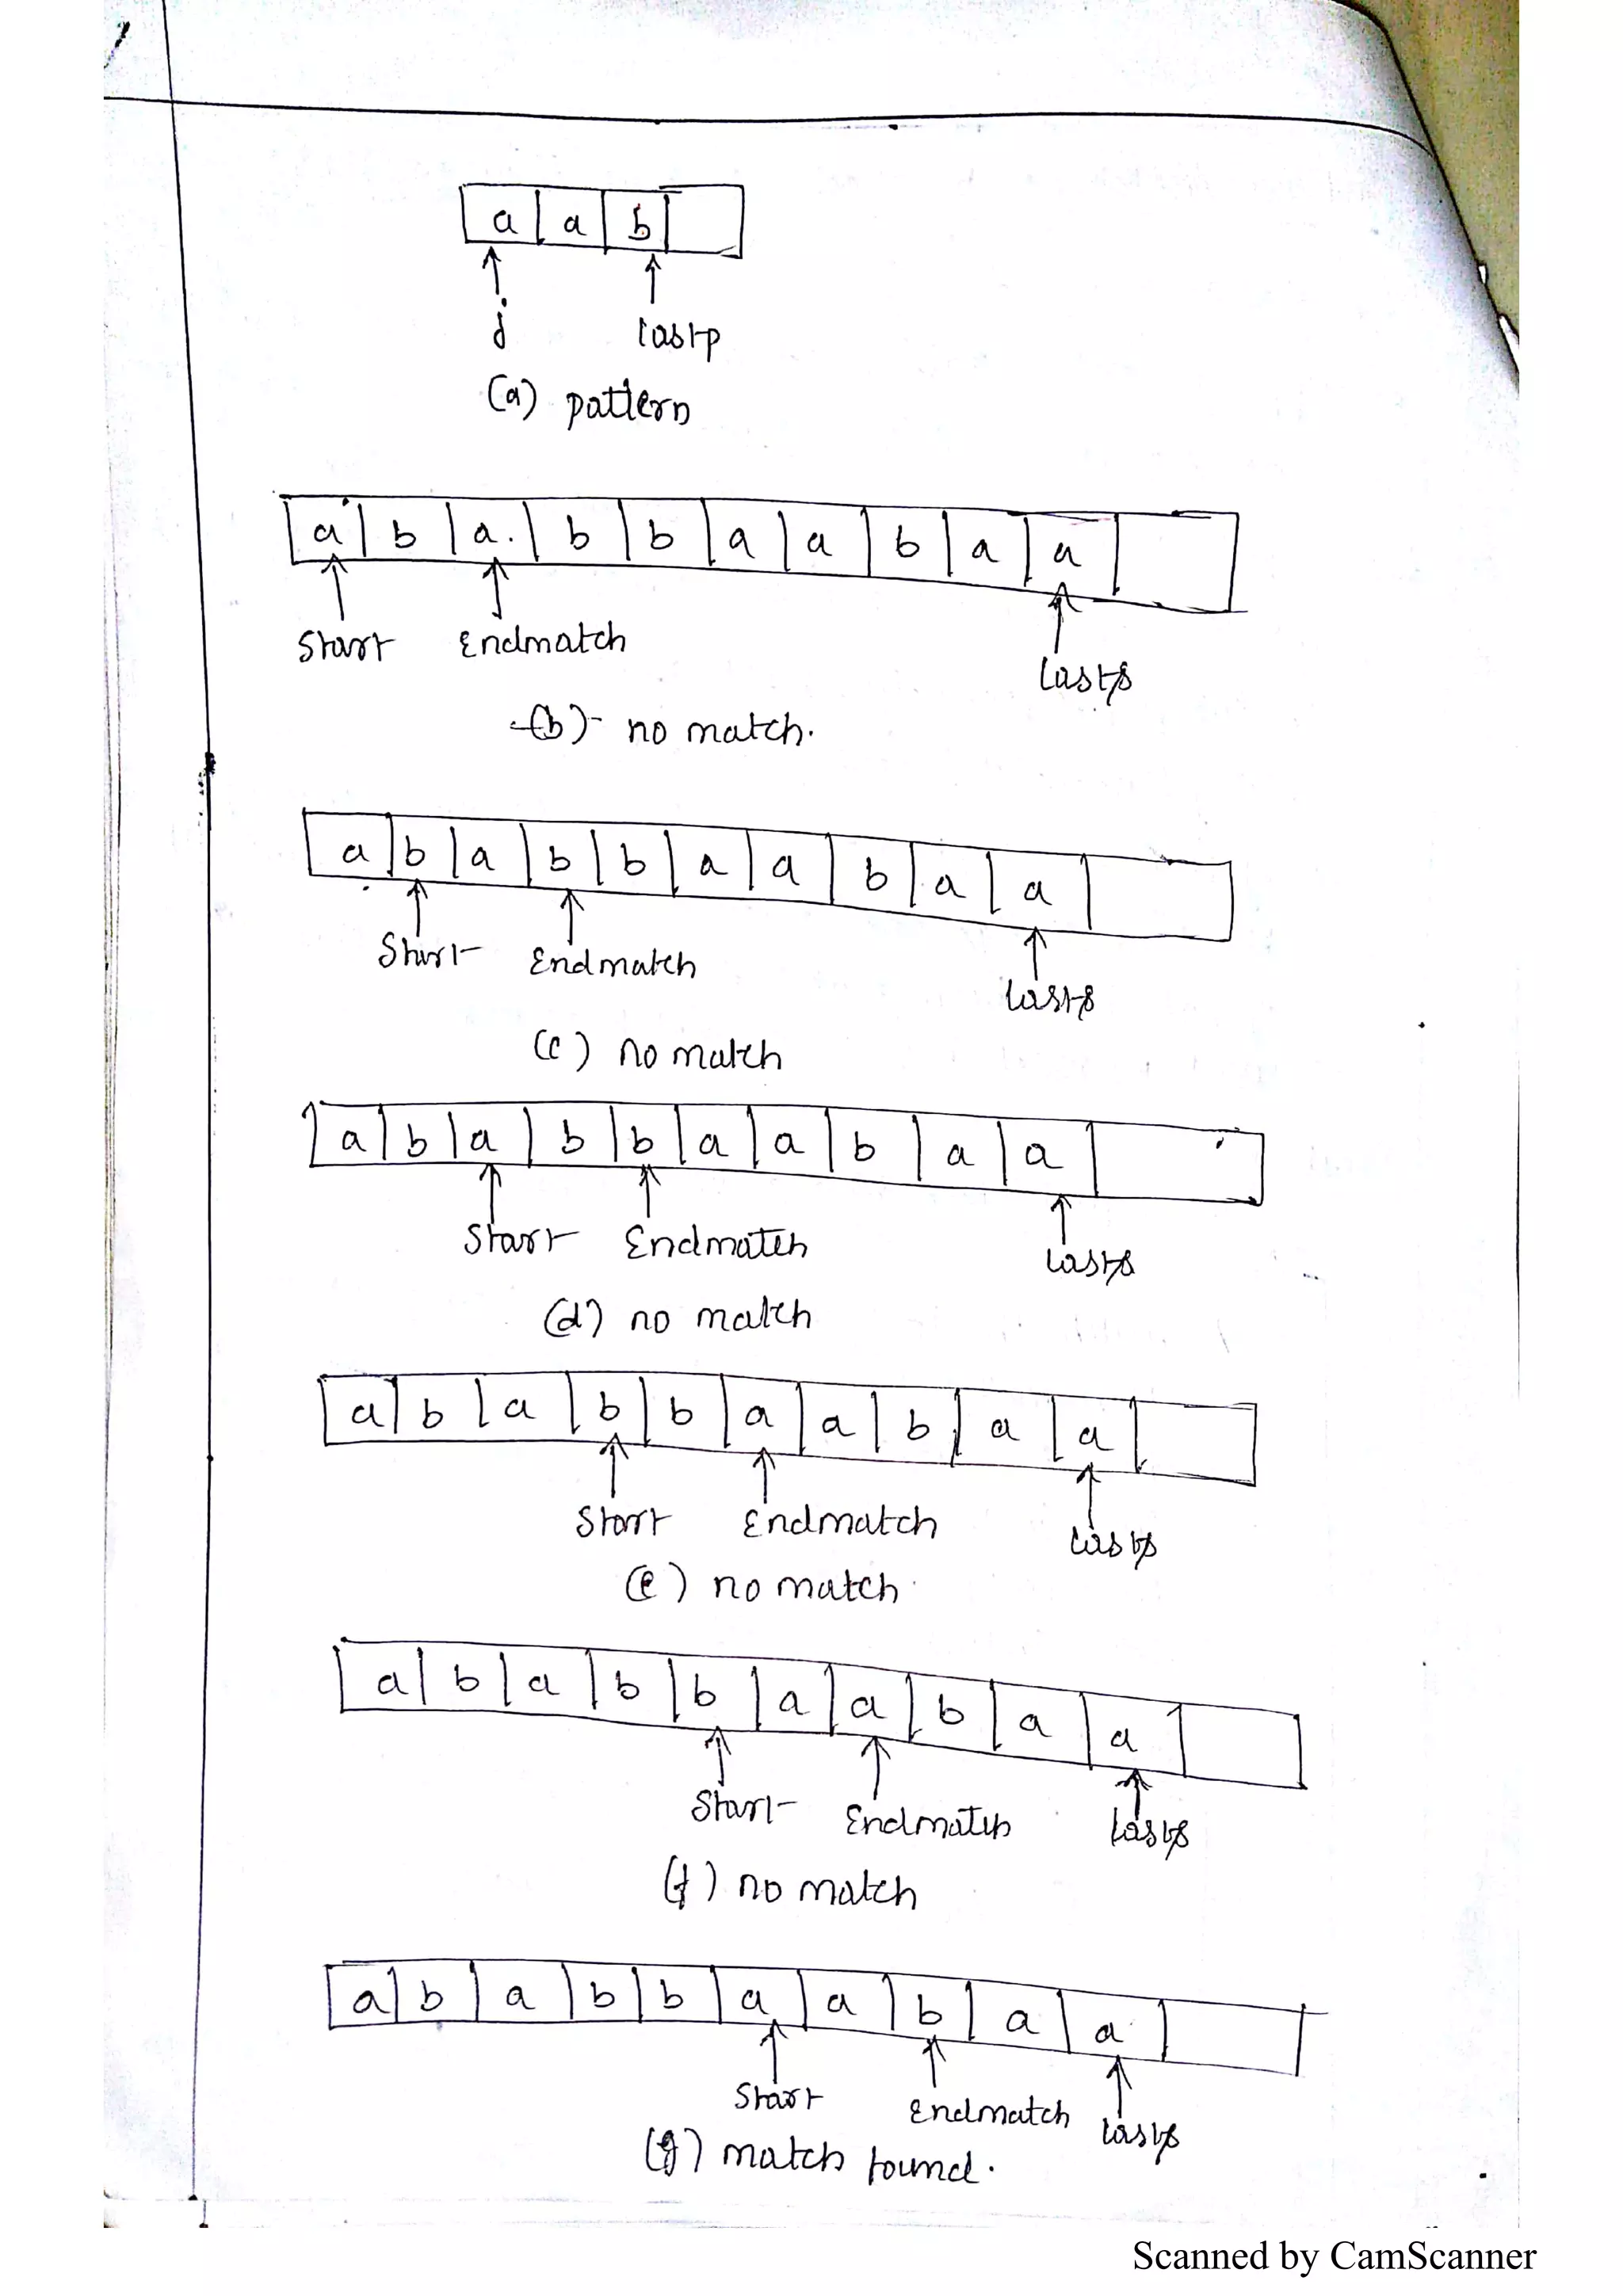 a a b
j lastp
(a) pattern
a b a b b a a b a a
Start Endmatch
lasts
(b) no match.
a b a b b a a b a a
Start Endmatch
lasts
(c) no match
a b a b b a a b a a
Start Endmatch
lasts
(d) no match
a b a b b a a b a a
Start Endmatch
lasts
(e) no match.
a b a b b a a b a a
Start Endmatch
lasts
(f) no match
a b a b b a a b a a
Start
Endmatch lasts
(g) match found.
Scanned by CamScanner